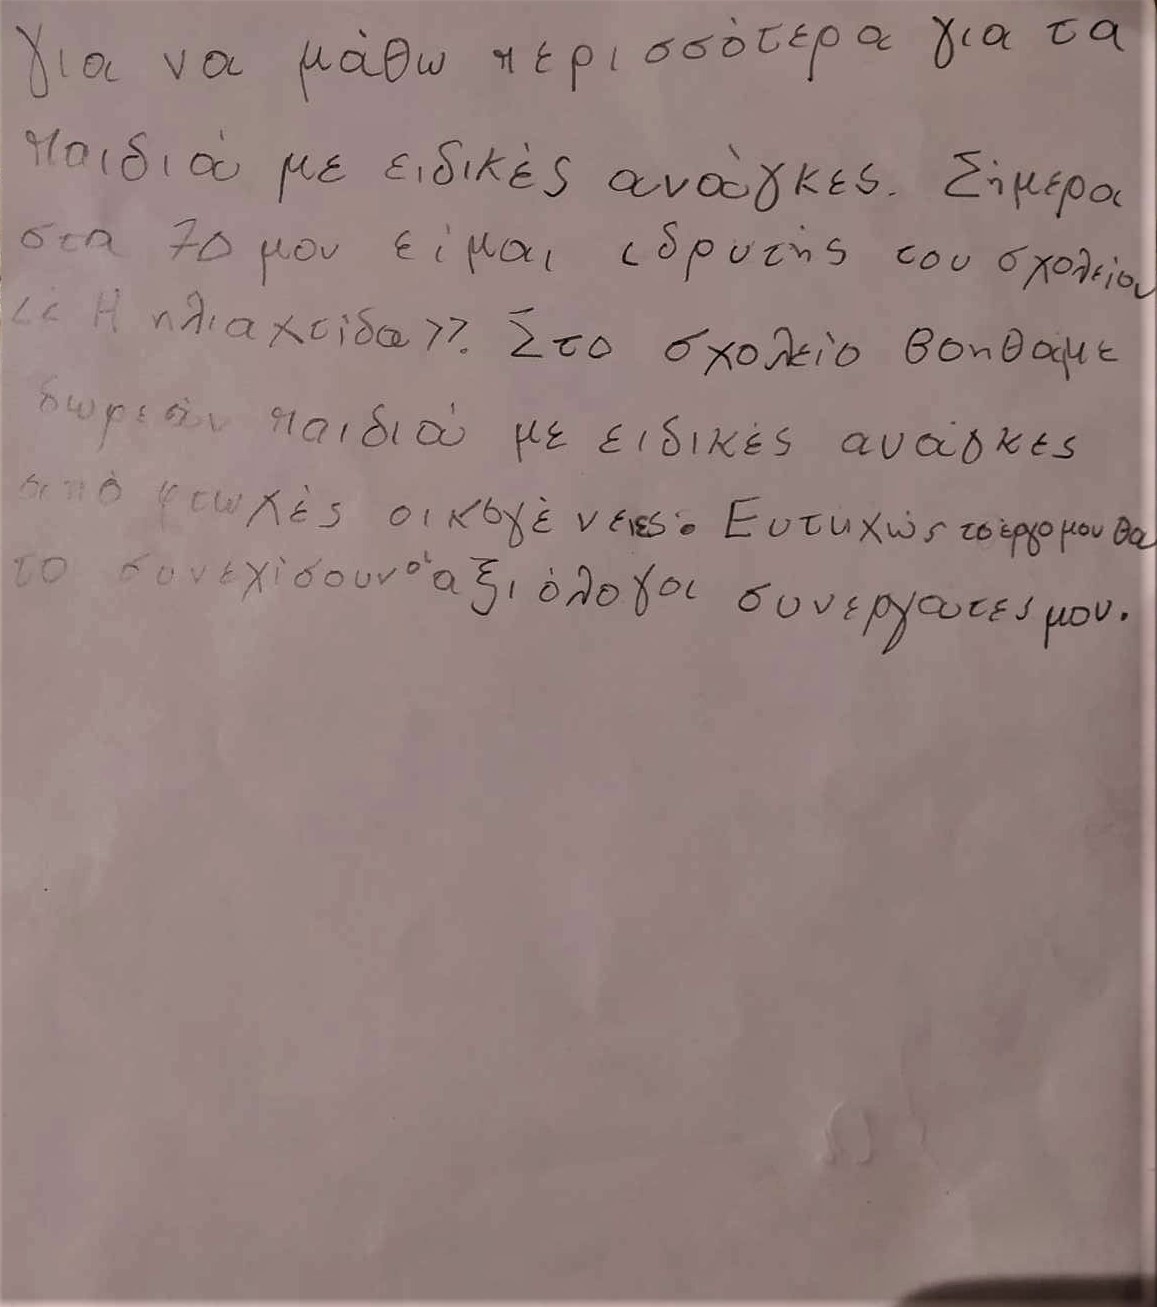 για να μάθω περισσότερα για τα
παιδιά με ειδικές ανάγκες. Σήμερα
στα 70 μου είμαι ιδρυτής του σχολείου
<< Η ηλιαχτίδα >>. Στο σχολείο βοηθάμε
δωρεάν παιδιά με ειδικές ανάγκες
από φτωχές οικογένειες. Ευτυχώς το έργο μου θα
το συνεχίσουν οι αξιόλογοι συνεργατες μου.